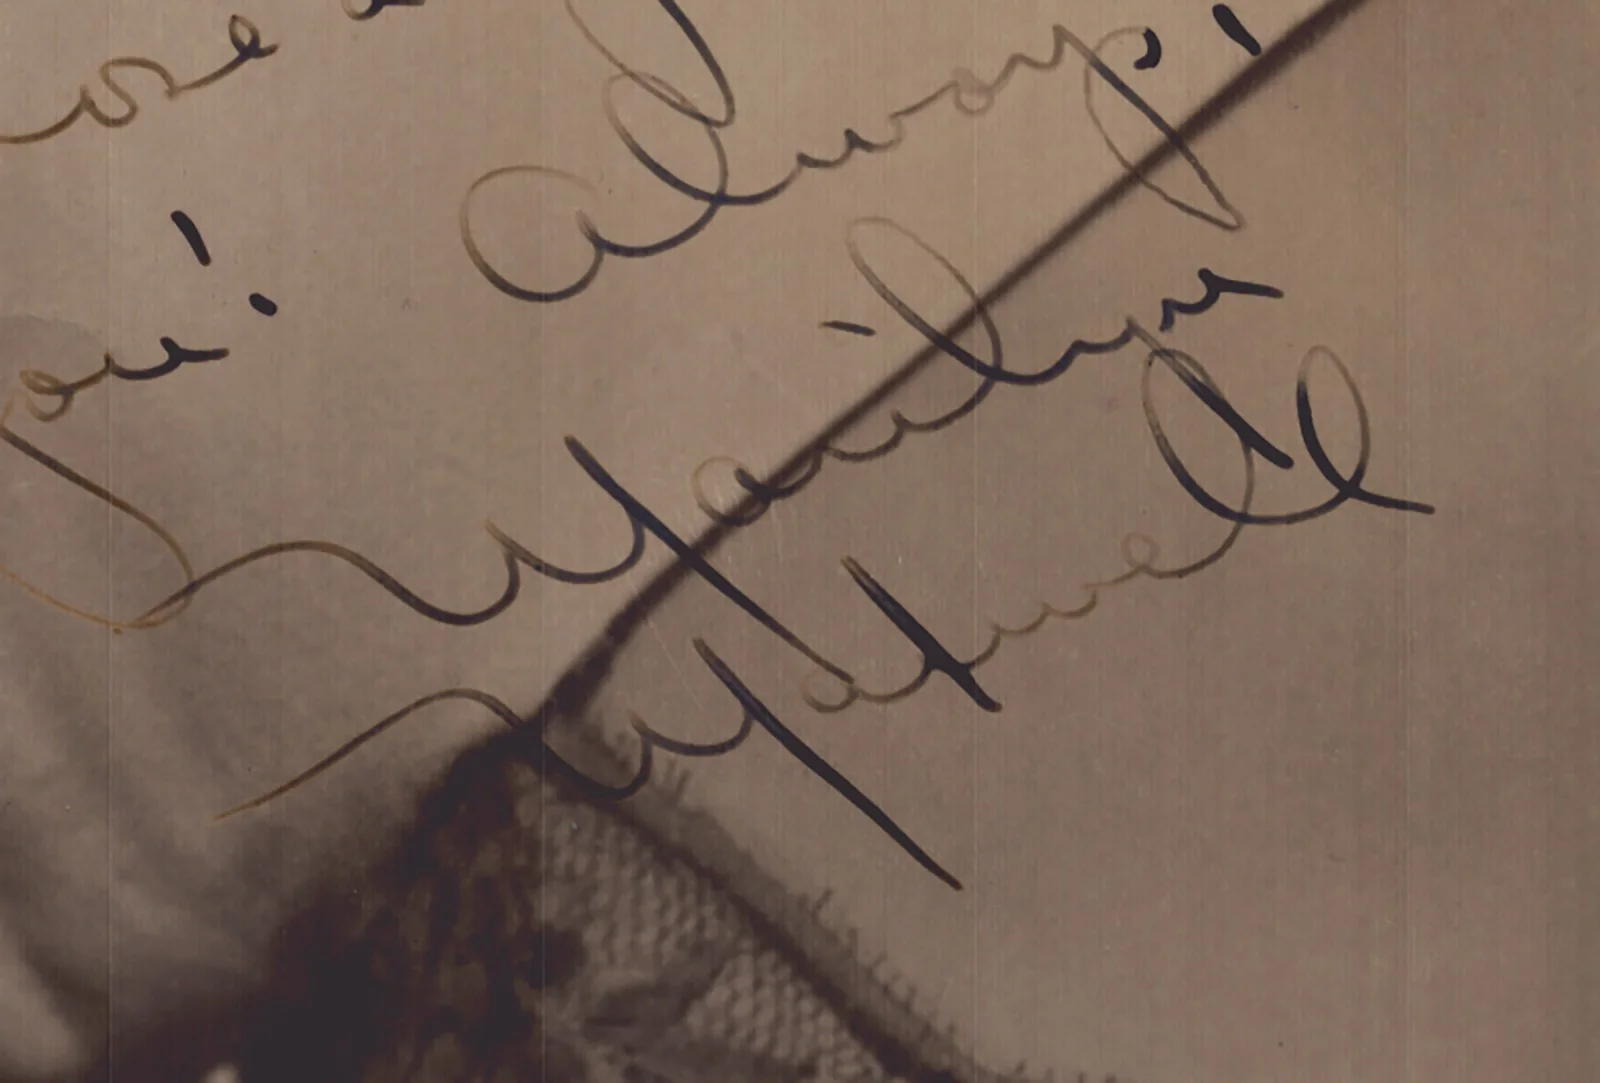 you!
Always,
Marilyn
Maxwell